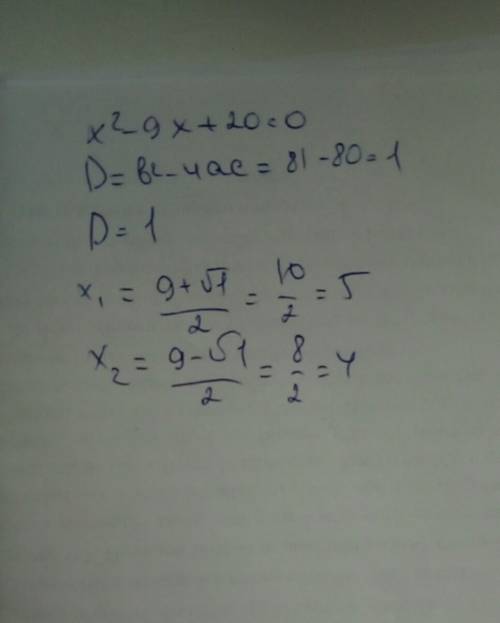 x²-9x+20=0
D=b²-4ac=81-80=1
D=1
x₁ = (9+√1)/2 = 10/2 = 5
x₂ = (9-√1)/2 = 8/2 = 4